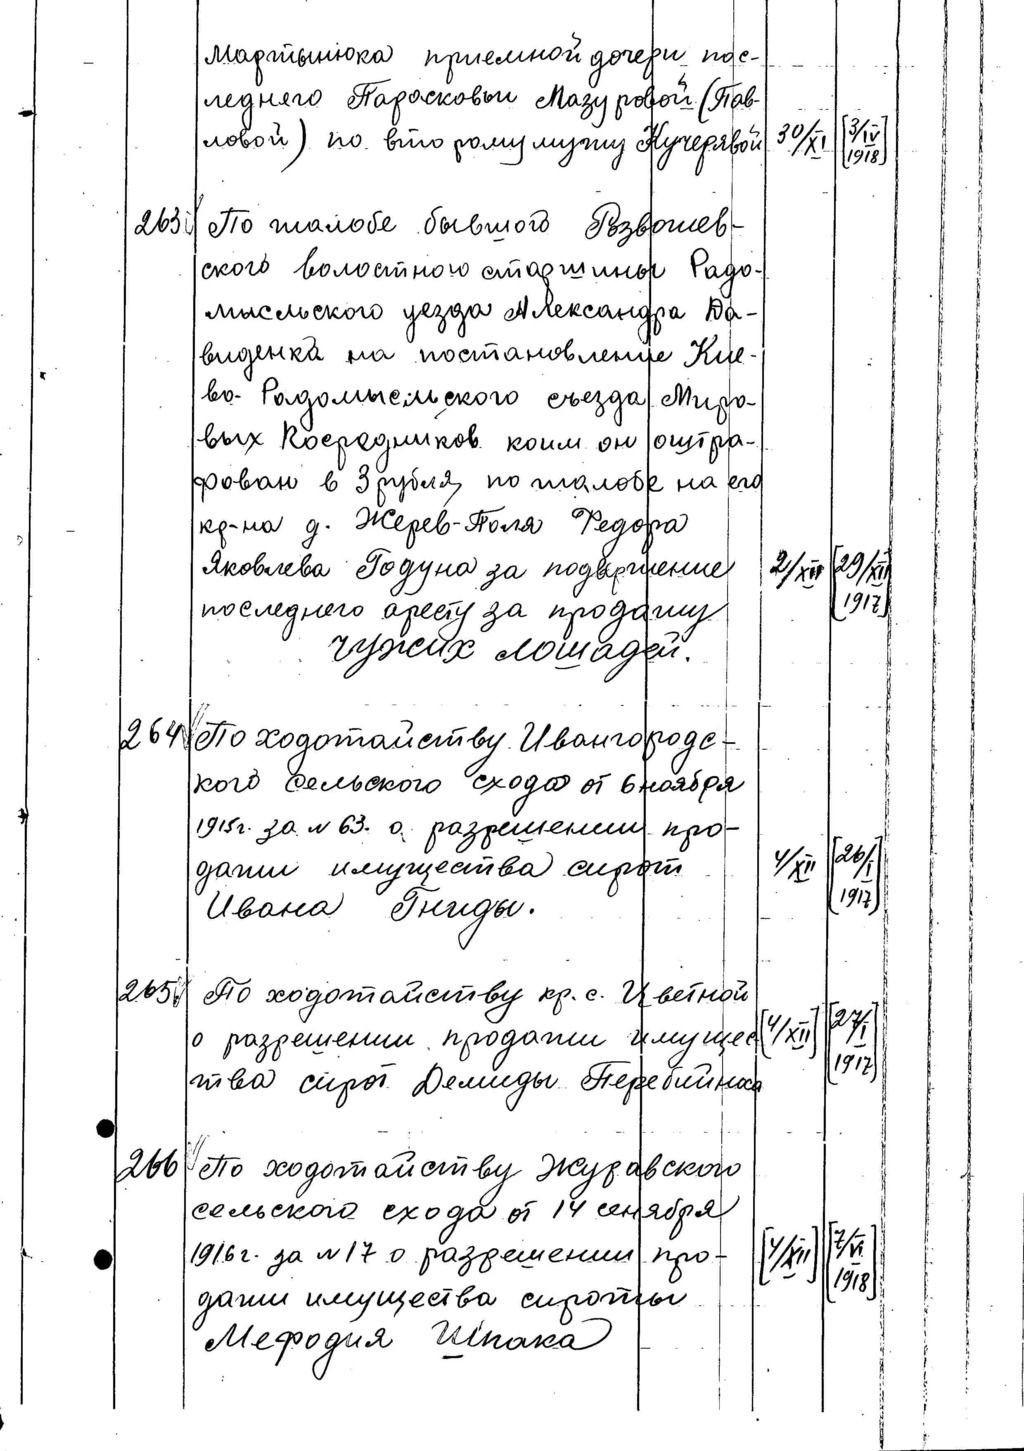 Мартынюка приемной дочери пос-
леднего Паросковьи Мазуровой (Пав-
ловой) по второму мужу Кучерявой 30/XI [3/IV
1918]
263 По жалобе бывшого Взвошев-
ского волостного старшины Радо-
мысльского уезда Александра Да-
виденка на постановление Кие-
во-Радомысльского съезда Миро-
вых Посредников коим он оштра-
фован в 3 рубля, по жалобе на его
кр-на д. Жерев-Поля Федора
Яковлева Годуна за подвержение 2/XII [29/XII
последнего аресту за продажу 1917]
чужих лошадей.
264 По ходотайству Ивангородс-
кого сельского схода от 6 ноября
1915г. за N 63. о разрешении про-
дажи имущества сирот 4/XII [26/I
Ивана Гниды. 1917]
265 По ходотайству кр. с. Цветной
о разрешении продажи имущес [4/XII] [27/I
тва сирот Демиды Перебийноса 1917]
266 По ходотайству Журавского
сельского схода от 14 сентября
1916г. за N 17 о разрешении про- [4/XII] [7/VI
дажи имущества сироты 1918]
Мефодия Шпака